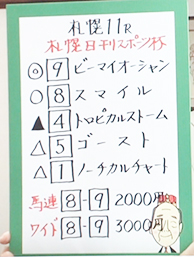 札幌11R
札幌日刊スポーツ杯
◎9ビーマイオーシャン
○8スマイル
▲4トロピカルストーム
△5ゴースト
△1ノーチカルチャート
馬連 8-9 2000円
ワイド 8-9 3000円